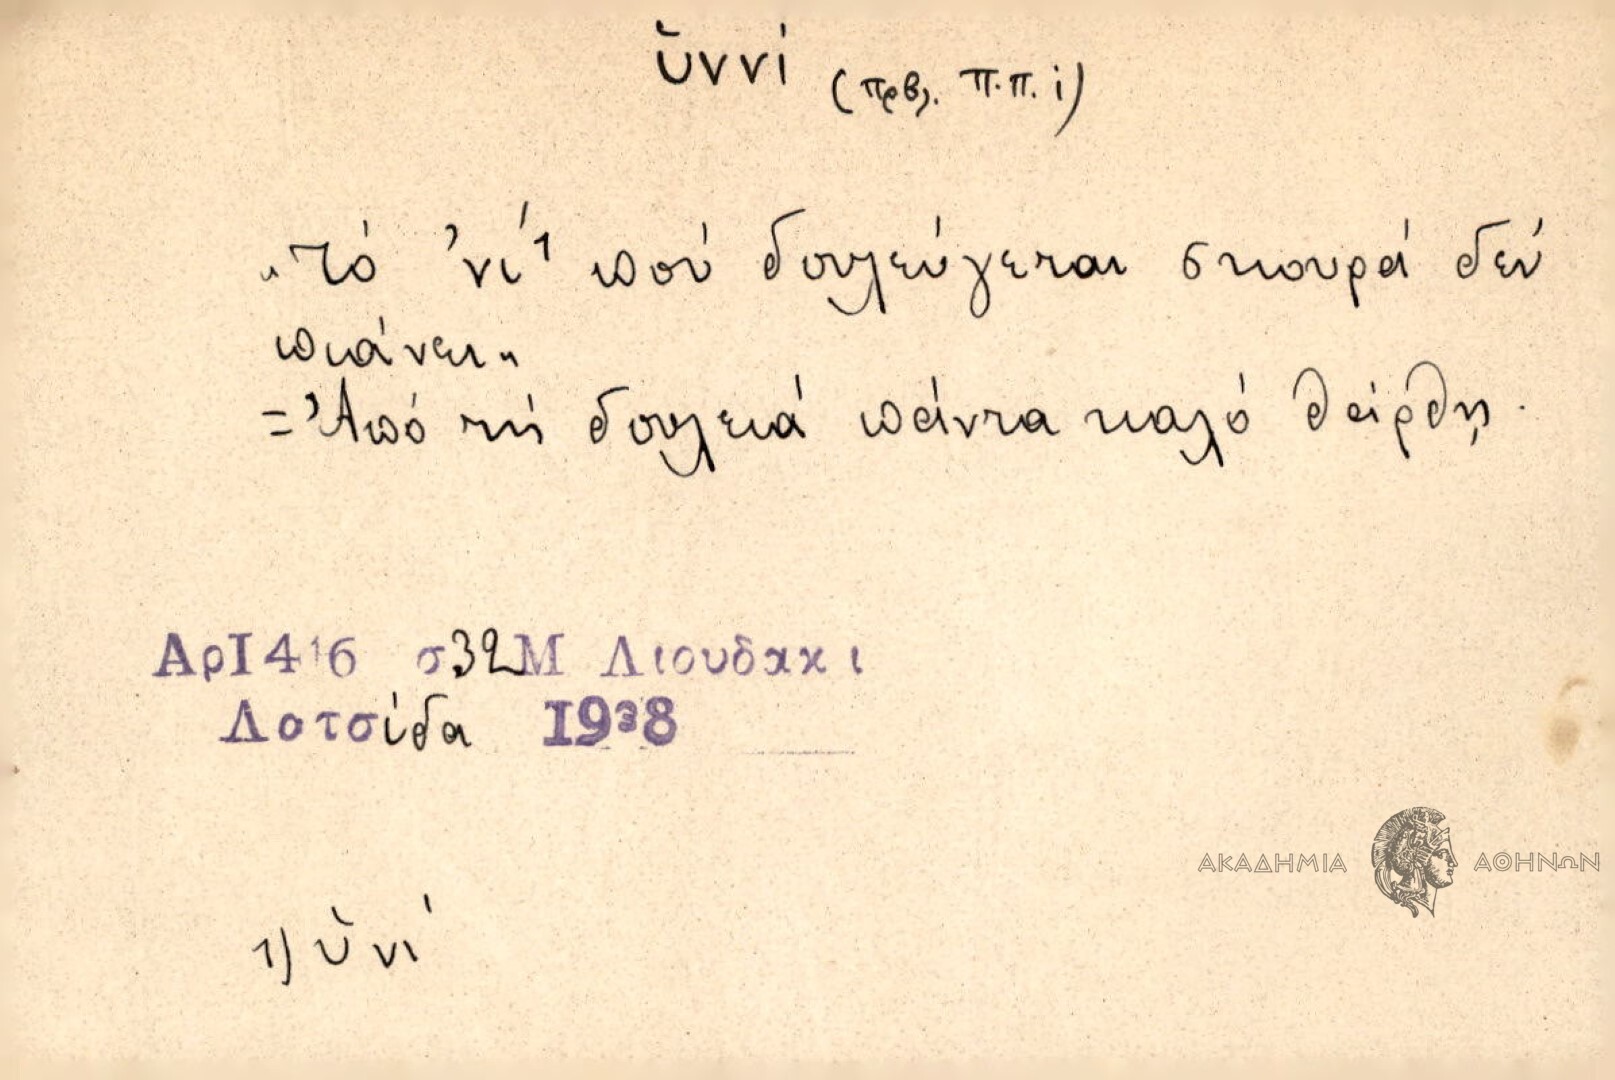 ὑννί (πρβ. Π.Π. ί)
"Τό 'νί¹ πού δουλεύγεται σκουρά δέν
πιάνει"
= Ἀπό τή δουλειά πάντα καλό θάρθῃ.
ΑρΙ416 σ32 Μ Λιουδακι
Λατσίδα 1938
ΑΚΑΔΗΜΙΑ ΑΘΗΝΩΝ
1) ὑνί